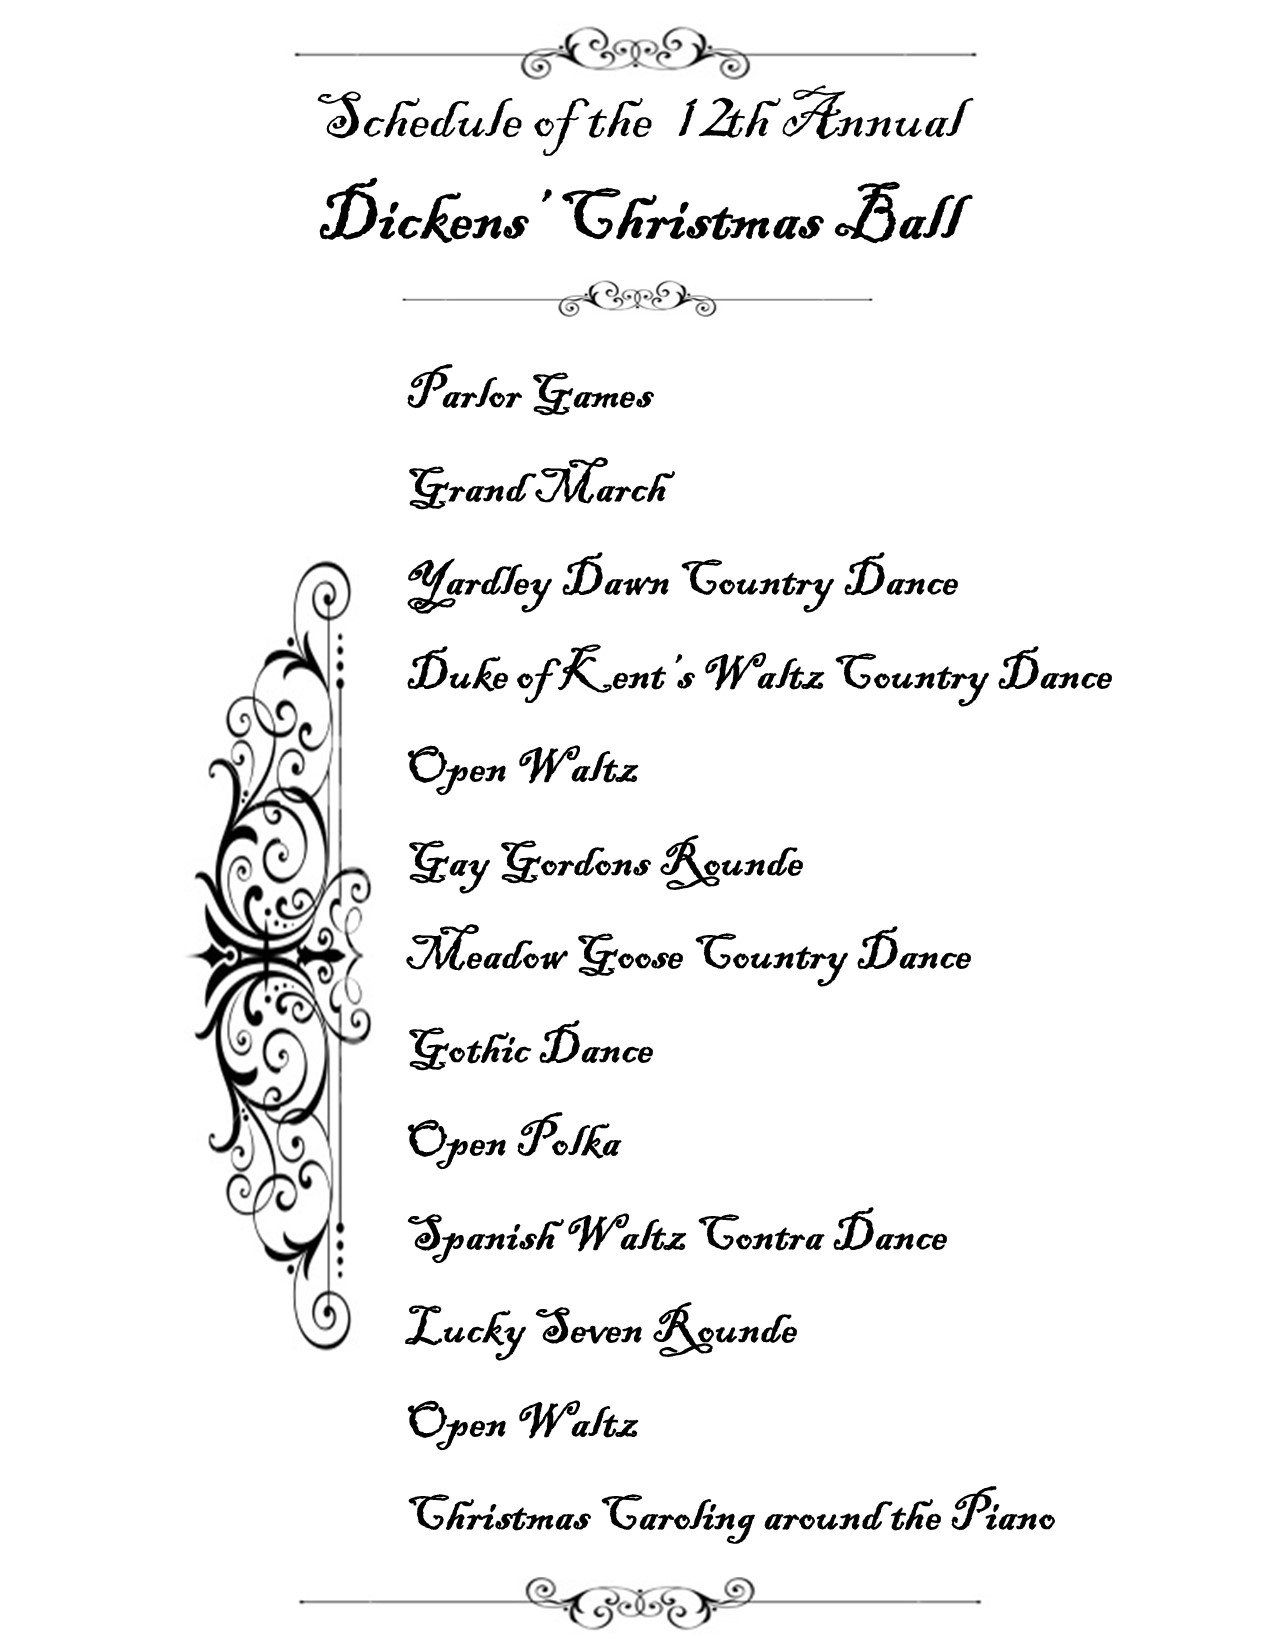 Schedule of the 12th Annual
Dickens' Christmas Ball
Parlor Games
Grand March
Yardley Dawn Country Dance
Duke of Kent's Waltz Country Dance
Open Waltz
Gay Gordons Rounde
Meadow Goose Country Dance
Gothic Dance
Open Polka
Spanish Waltz Contra Dance
Lucky Seven Rounde
Open Waltz
Christmas Caroling around the Piano